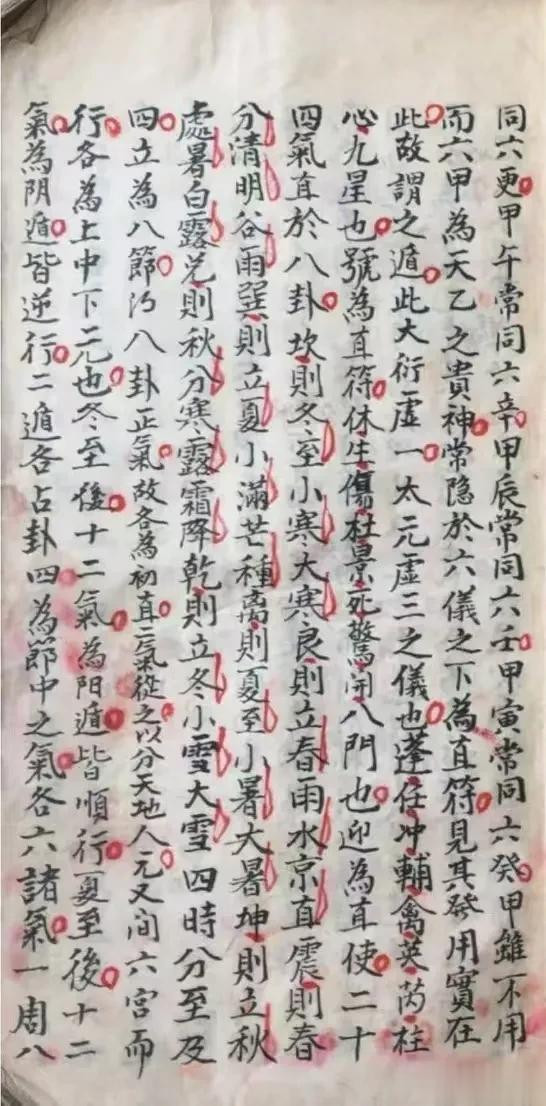 同六更甲午常同六辛甲辰常同六壬甲寅常同六癸甲雖不用
而六甲為天乙之貴神常隐於六儀之下為直符見其發用實在
此故謂之遁此大衍虚一太元虚三之儀也蓬任冲輔禽英芮柱
心九星也號為直符休生傷杜景死驚開八門也迎為直使二十
四氣直於八卦坎則冬至小寒大寒艮則立春雨水京直震則春
分清明谷雨巽則立夏小滿芒種离則夏至小暑大暑坤則立秋
處暑白露兑則秋分寒露霜降乾則立冬小雪大雪四時分至及
四立為八節乃八卦正氣故各為初直二氣從之以分天地人元又间六宫而
行各為上中下二元也冬至後十二氣為阳遁皆順行夏至後十二
氣為阴遁皆逆行二遁各占卦四為節中之氣各六諸氣一周八